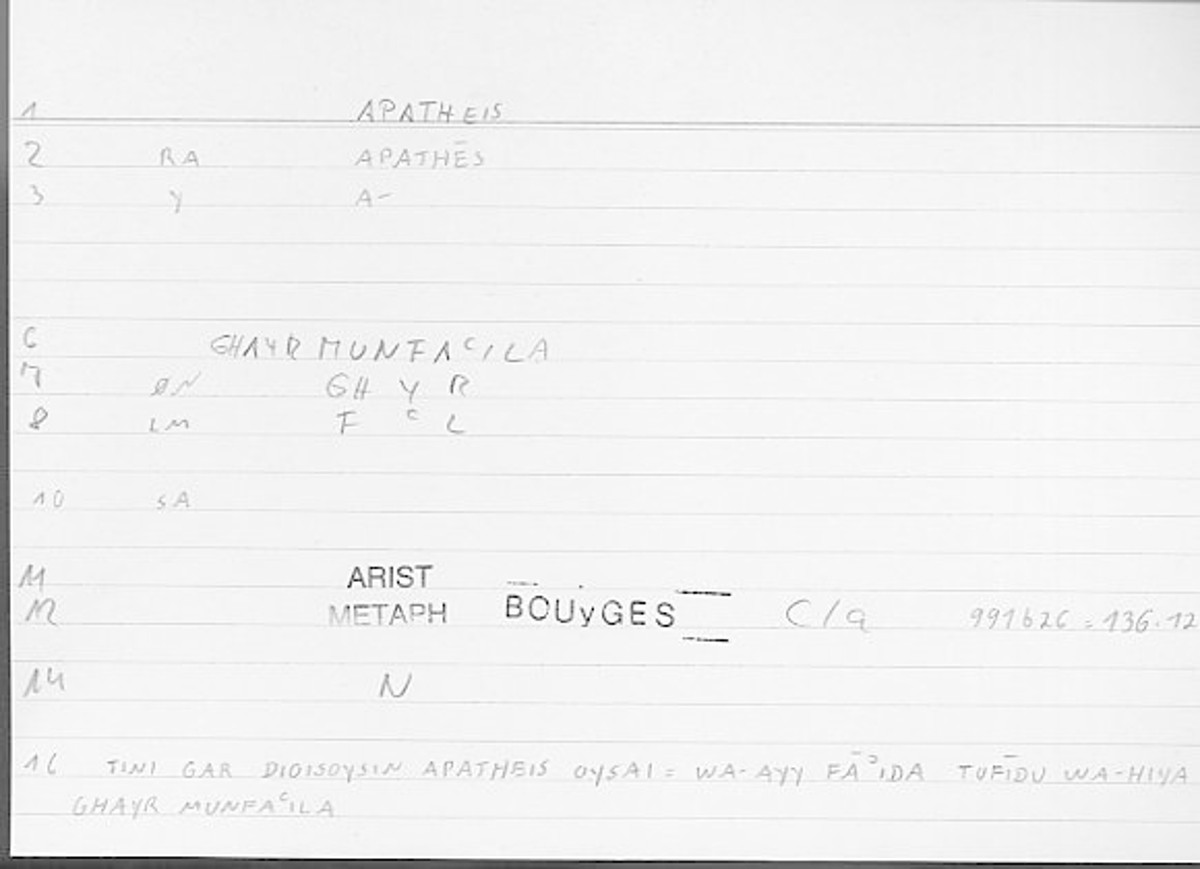 1 APATHEIS
2 RA APATHĒS
3 Y A-
6 GHAYR MUNFAᶜILA
7 ØN GH Y R
8 LM F ᶜ L
10 SA
11 ARIST
12 METAPH BOUYGES C/a 991b26 = 136.12
14 N
16 TINI GAR DIOISOYSIN APATHEIS OYSAI = WA-AYY FĀʾIDA TUFĪDU WA-HIYA
GHAYR MUNFAᶜILA